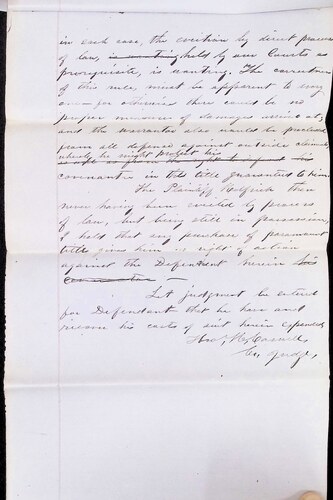 in such case, the eviction by direct process
of law, is wanting held by our Courts as
prerequisite, is wanting. The correctness
of this rule, must be apparent to any
one for otherwise there could be no
proper measure of damages assessed,
and the warrantor also would be precluded
from all defense against outside claimants
whereby he might protect his
covenant in the title guaranteed to him.
The Plaintiff then
never having been evicted by process
of law, but being still in possession,
I hold that any purchase of paramount
title, gives him no right of action
against the Defendant herein his
Let judgment be entered
for Defendant that he have and
recover his costs of suit herein expended
Judge,